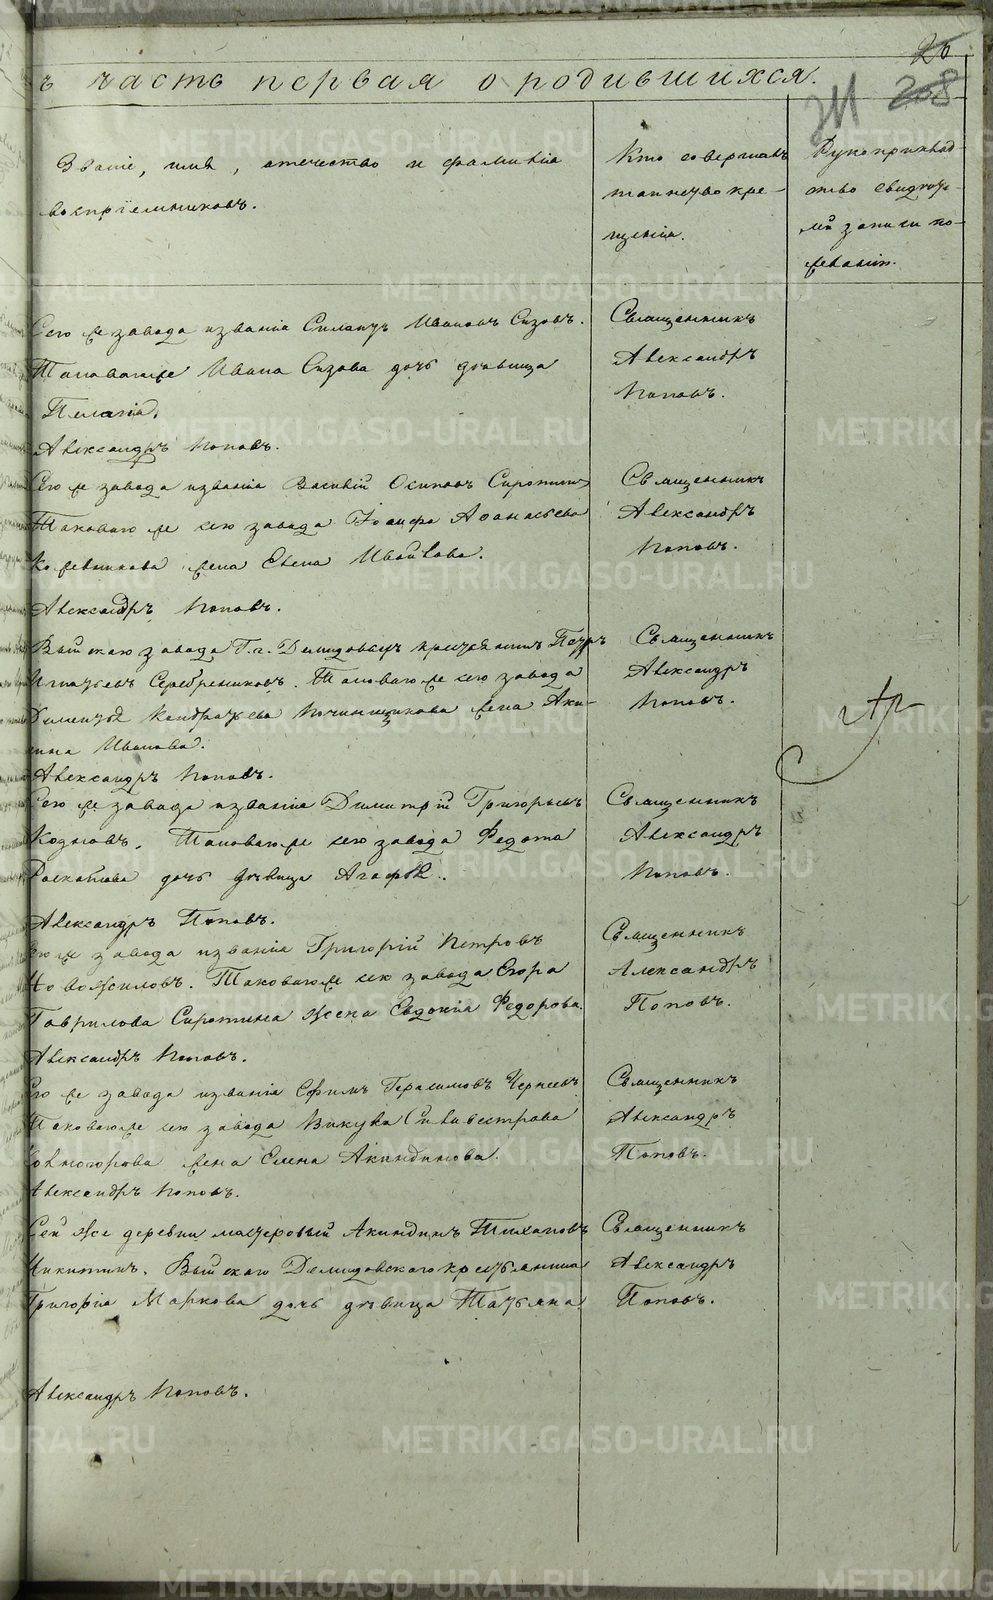 26
ъ часть первая о родившихся.
211 208
Званіе, имя, отечество и фамилія
воспріемниковъ.
Кто совершалъ
таинство кре-
щенія.
Рукоприклад-
ство свидѣте-
лей записи по
желанію.
Сего же завода званія Иванъ Сизовъ.
Таковаго же Ивана Сизова дочь дѣвица
Пелагія.
Александръ Поповъ.
Священникъ
Александръ
Поповъ.
Сего же завода званія Василій Осиповъ Сиротинъ
Таковаго же сего завода Іосифа Афанасьева
Кожевникова жена Елена Иванова.
Александръ Поповъ.
Священникъ
Александръ
Поповъ.
Выйскаго завода Г.г. Демидовыхъ крестьянинъ Петръ
Игнатьевъ Серебрениковъ. Таковаго же сего завода
Кондратьева жена Аки-
лина Иванова.
Александръ Поповъ.
Священникъ
Александръ
Поповъ.
Сего же завода званія Димитрій Григорьевъ
Козловъ. Таковаго же сего завода Федота
дочь дѣвица Агафья.
Александръ Поповъ.
Священникъ
Александръ
Поповъ.
Сего же завода званія Григорій Петровъ
Новожиловъ. Таковаго же сего завода Егора
Гаврилова Сиротина жена Евдокія Федорова.
Александръ Поповъ.
Священникъ
Александръ
Поповъ.
Сего же завода званія Ефимъ Герасимовъ
Таковаго же сего завода Викула Силивестрова
жена Елена Акиндинова.
Александръ Поповъ.
Священникъ
Александръ
Поповъ.
Сей же деревни мастеровый Акиндинъ Тихановъ
Никитинъ. Выйскаго Демидовскаго крестьянина
Григорія Маркова дочь дѣвица Татьяна.
Александръ Поповъ.
Священникъ
Александръ
Поповъ.
METRIKI.GASO-URAL.RU